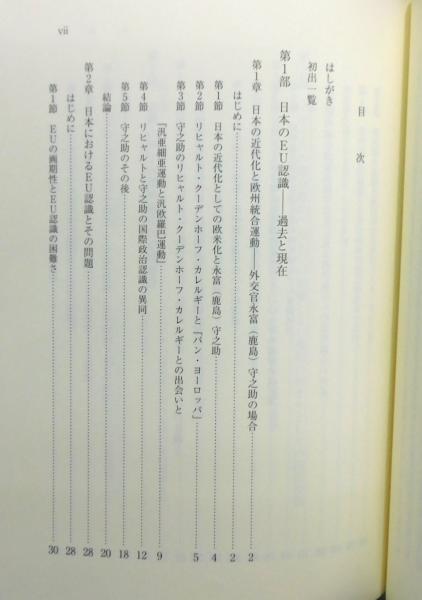 目次
はしがき
初出一覧
第1部 日本のEU認識——過去と現在
第1章 日本の近代化と欧州統合運動——外交官永富（鹿島）守之助の場合……2
はじめに……2
第1節 日本の近代化としての欧米化と永富（鹿島）守之助……4
第2節 リヒャルト・クーデンホーフ・カレルギーと『パン・ヨーロッパ』……5
第3節 守之助のリヒャルト・クーデンホーフ・カレルギーとの出会いと
『汎亜細亜運動と汎欧羅巴運動』……9
第4節 リヒャルトと守之助の国際政治認識の異同……12
第5節 守之助のその後……18
結論……20
第2章 日本におけるEU認識とその問題……28
はじめに……28
第1節 EUの画期性とEU認識の困難さ……30
vii